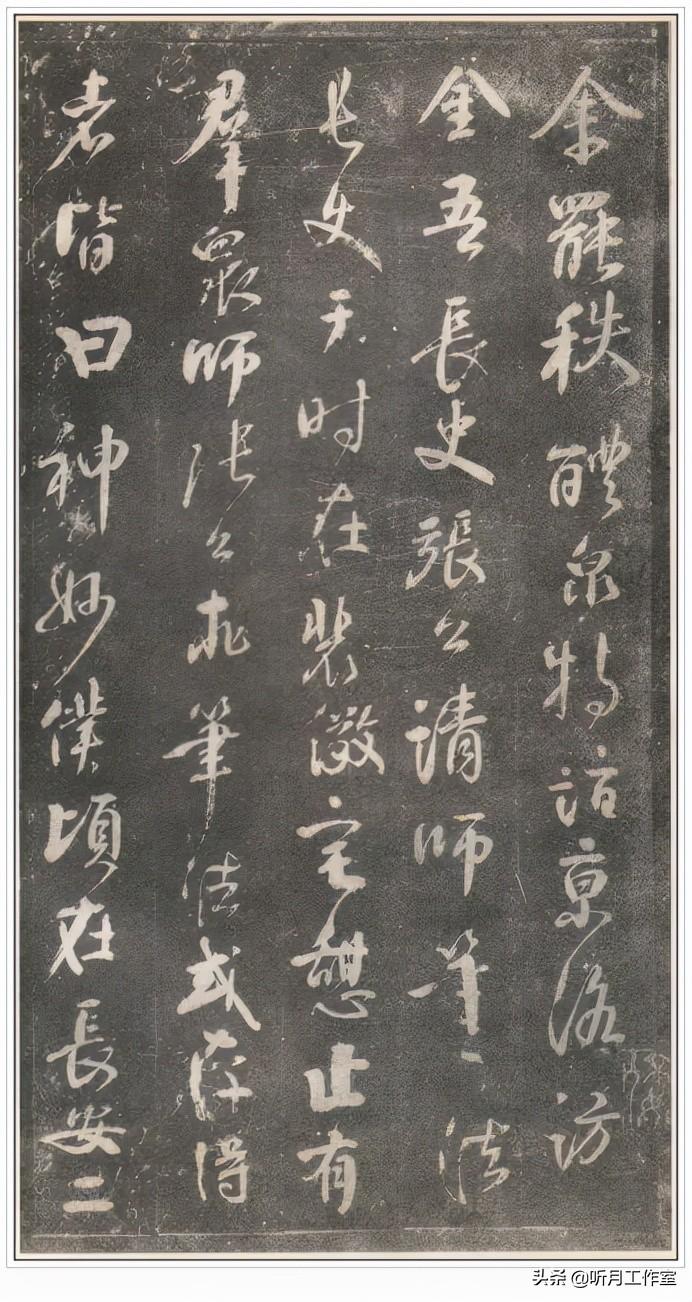 余罷秩醴泉特詣京洛訪
金吾長史張公請師筆〻法
長史于时在裴儆宅憩止有
羣眾師張公求筆法或存得
者皆曰神妙僕頃在長安二
头条 @听月工作室